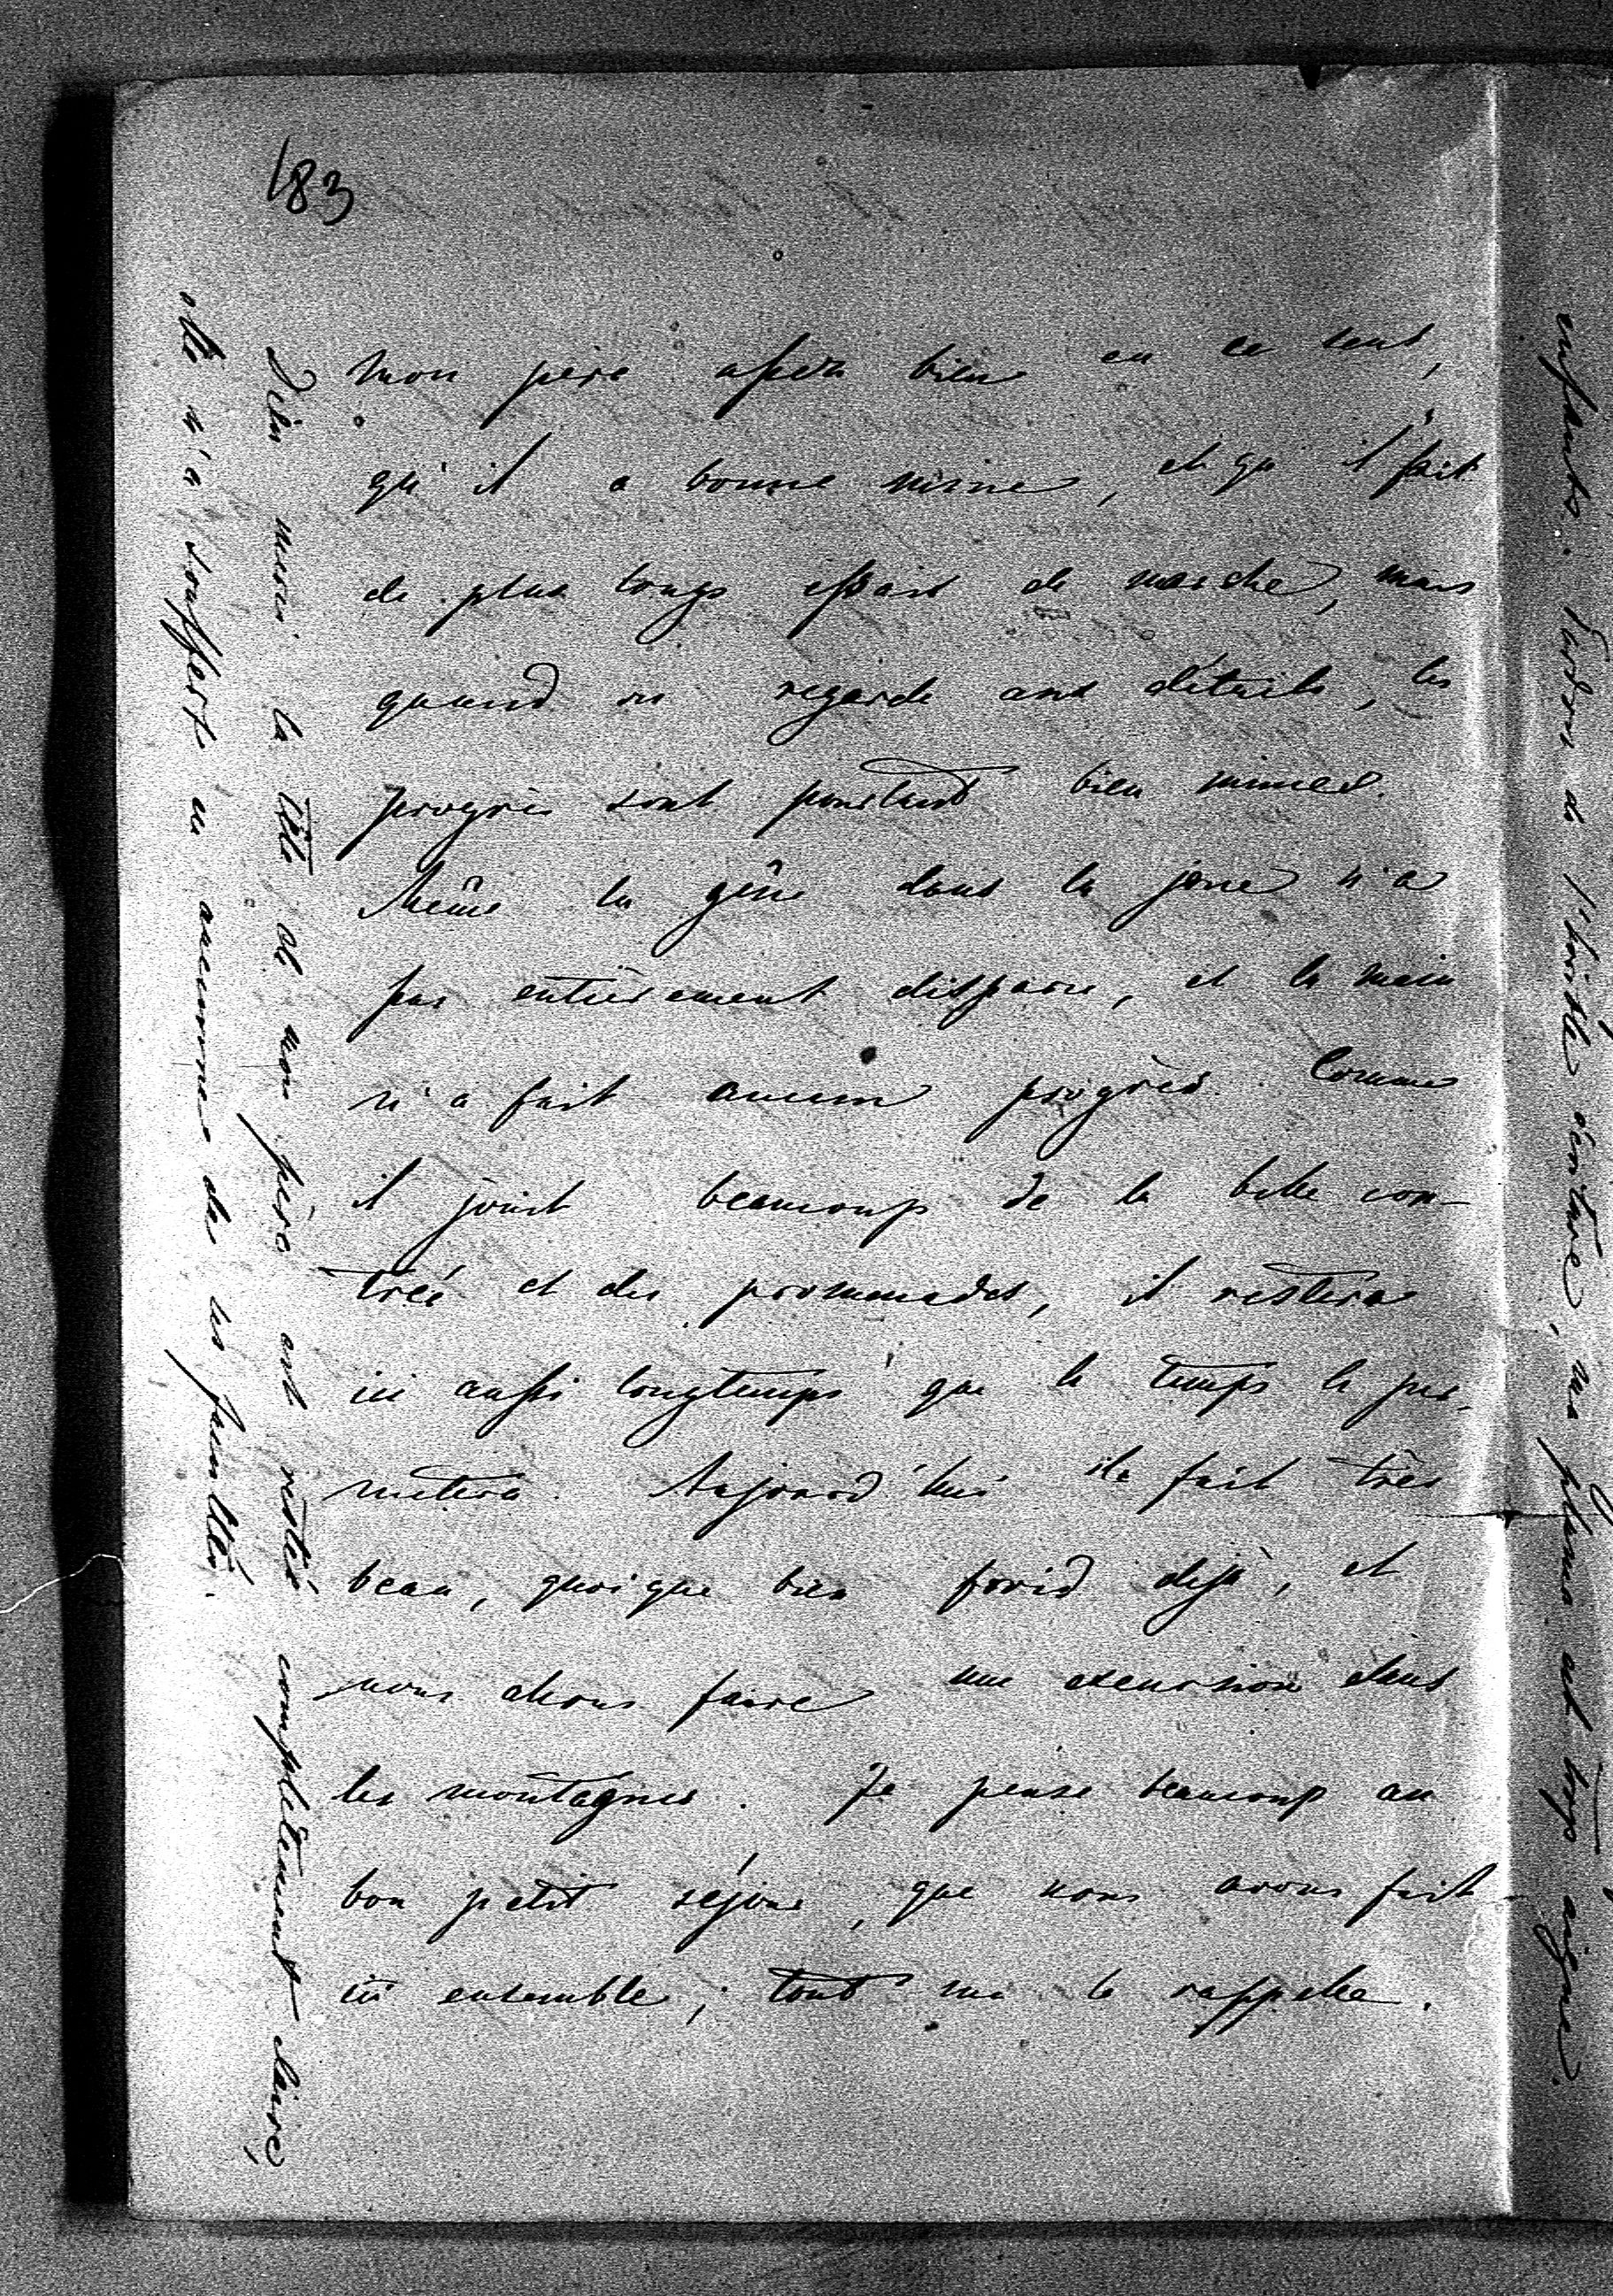 183
mon père assez bien en ce sens,
qu'il a bonne mine, et qu'il fait
de plus longs essais de marche, mais
quand on regarde aux détails, les
progrès sont pourtant bien minces.
Même la gêne dans la joue n'a
pas entièrement disparu, et la main
n'a fait aucun progrès. Comme
il jouit beaucoup de la belle con-
trée et des promenades, il restera
ici aussi longtemps que le temps le per-
mettra. Aujourd'hui il fait très
beau, quoique bien froid déjà, et
nous allons faire une excursion dans
les montagnes. Je pense beaucoup au
bon petit séjour, que nous avons fait
ici ensemble; tout me le rappelle.
Dieu merci la tête de mon père est restée complètement claire,
elle n'a souffert en aucune de ses facultés.
enfants. Pardon de l'horrible écriture, ma plume est trop aigue.